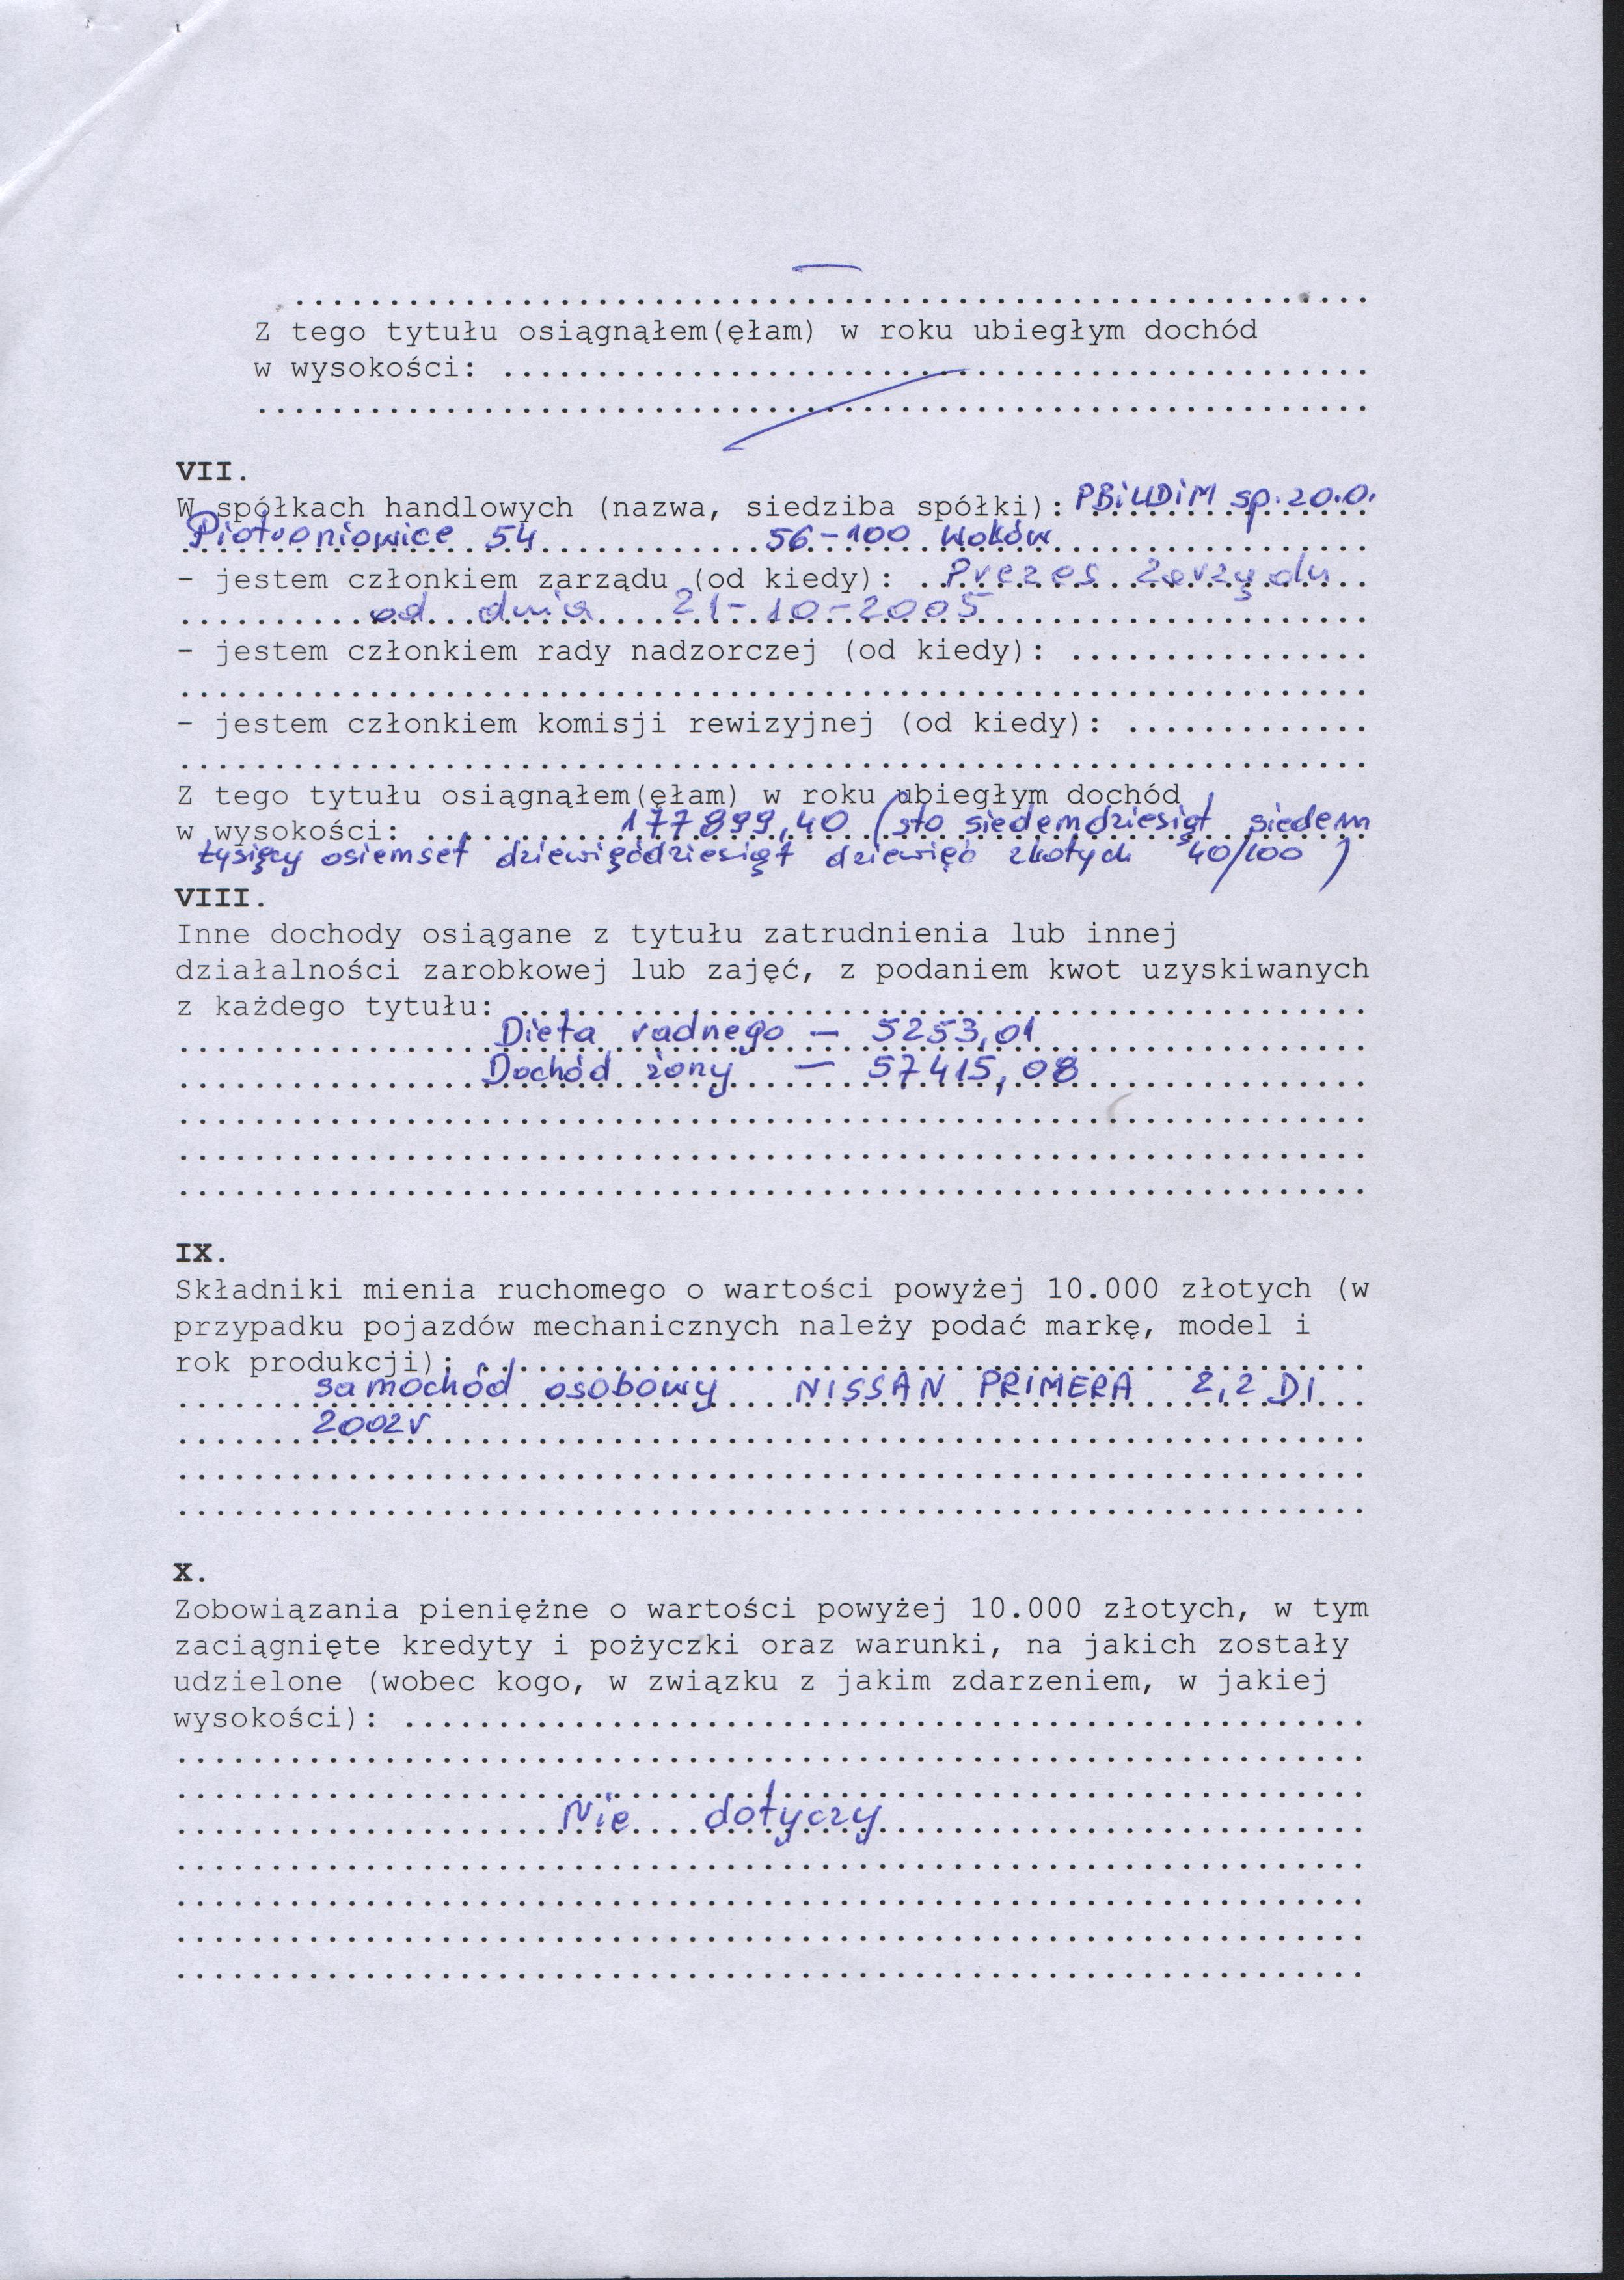 —
..............................................................
Z tego tytułu osiągnąłem(ęłam) w roku ubiegłym dochód
w wysokości: ..............................................
..............................................................
VII.
W spółkach handlowych (nazwa, siedziba spółki): PBiUDiM sp. zo.o.
Piotroniowice 54 56-100 Wołów
- jestem członkiem zarządu (od kiedy): Prezes Zarządu
od dnia 21-10-2005
- jestem członkiem rady nadzorczej (od kiedy): ................
..............................................................
- jestem członkiem komisji rewizyjnej (od kiedy): .............
..............................................................
Z tego tytułu osiągnąłem(ęłam) w roku ubiegłym dochód
w wysokości: 177899,40 (sto siedemdziesiąt siedem
tysięcy osiemset dziewięćdziesiąt dziewięć złotych 40/100)
VIII.
Inne dochody osiągane z tytułu zatrudnienia lub innej
działalności zarobkowej lub zajęć, z podaniem kwot uzyskiwanych
z każdego tytułu: .............................................
Dieta radnego — 5253,01
Dochód żony — 57415,08
..............................................................
..............................................................
..............................................................
IX.
Składniki mienia ruchomego o wartości powyżej 10.000 złotych (w
przypadku pojazdów mechanicznych należy podać markę, model i
rok produkcji): ...............................................
samochód osobowy NISSAN PRIMERA 2,2 DI
2002r
..............................................................
..............................................................
X.
Zobowiązania pieniężne o wartości powyżej 10.000 złotych, w tym
zaciągnięte kredyty i pożyczki oraz warunki, na jakich zostały
udzielone (wobec kogo, w związku z jakim zdarzeniem, w jakiej
wysokości): ...................................................
..............................................................
..............................................................
Nie dotyczy
..............................................................
..............................................................
..............................................................
..............................................................